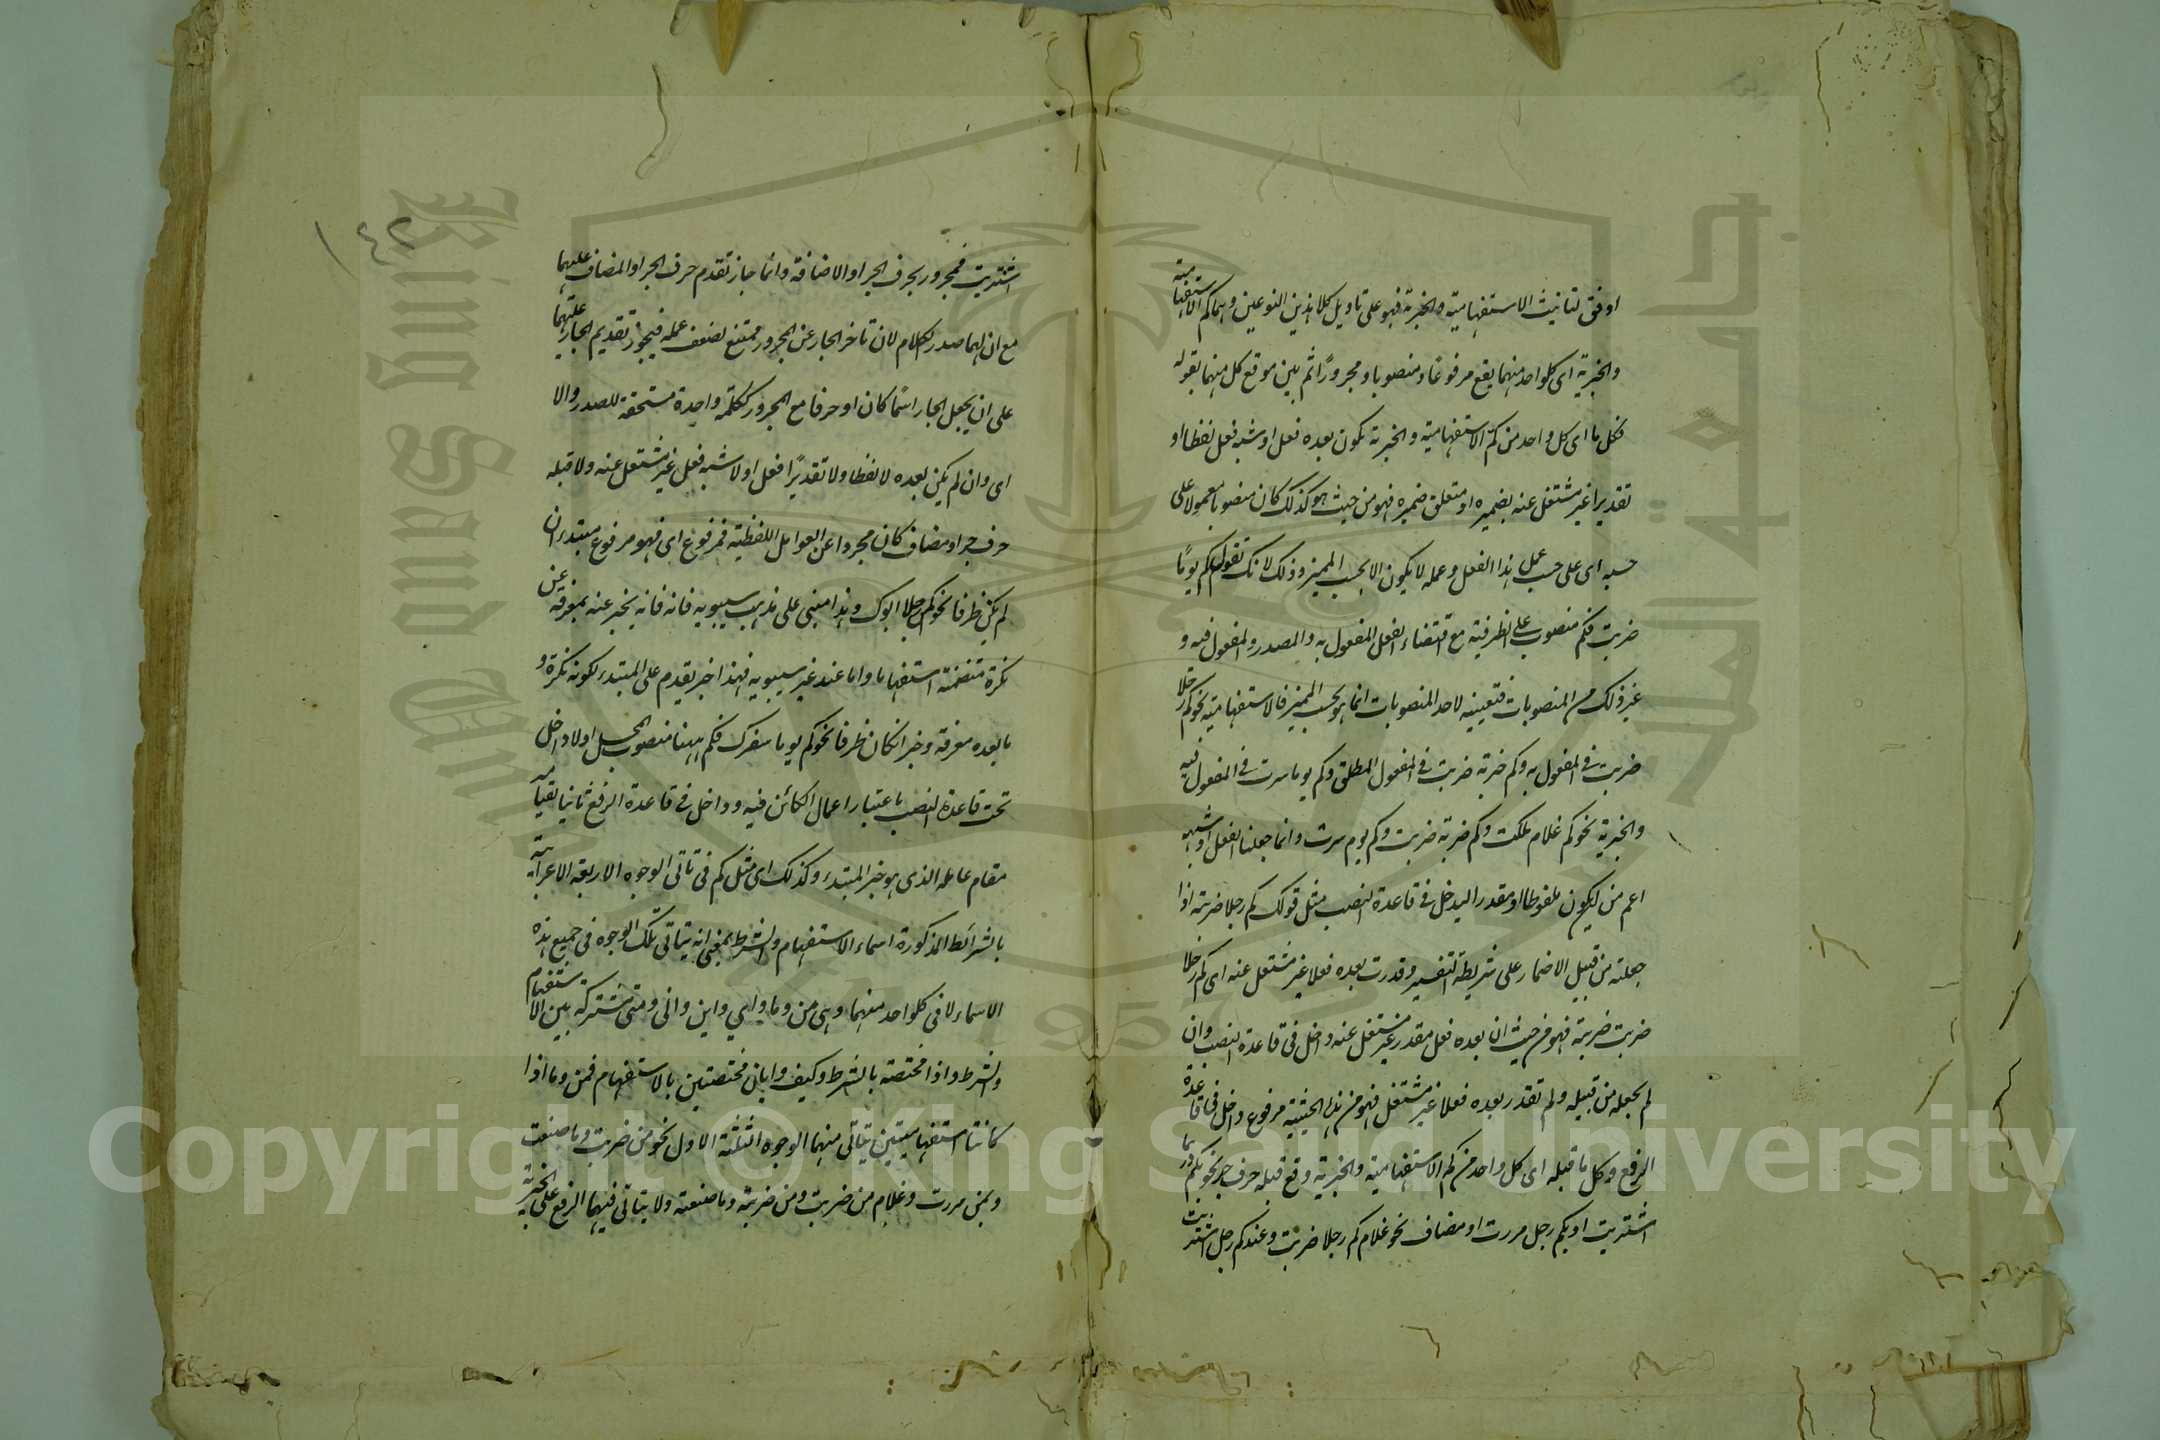 اوفق لتانيث الاستفهامية والخبرية فهو على تاويل كلا هذين النوعين وهما كم الاستفهامية
والخبرية اى كلواحد منهما يقع مرفوعًا ومنصوبا ومجرورًا ثم بين موقع كل منهما بقوله
فكل ما اى كل واحد من كم الاستفهامية والخبرية يكون بعده فعل او شبه فعل لفظا او
تقديرا غير مشتغل عنه بضميره او متعلق ضميره فهو من حيث هو كذلك كان منصوبا معمولا على
حسبه اى على حسب عمل هذا الفعل وعمله لا يكون الا بحسب المميز وذلك لانك تقول كم يومًا
ضربت فكم منصوب على الظرفية مع اقتضاء الفعل المفعول به والمصدر والمفعول فيه و
غير ذلك من المنصوبات فتعيينه لاحد المنصوبات انما هو بحسب المميز فالاستفهامية نحو كم رجلا
ضربت فى المفعول به وكم ضربة ضربت فى المفعول المطلق وكم يوما سرت فى المفعول فيه
والخبرية نحو كم غلام ملكت وكم ضربة ضربت وكم يوم سرت وانما جعلنا الفعل او شبهه
اعم من ان يكون ملفوظا او مقدرا ليدخل فى قاعدة النصب مثل قولك كم رجلا ضربته اذا
جعلته من قبيل الاضمار على شريطة التفسير وقدرت بعده فعلا غير مشتغل عنه اى كم رجلا
ضربت ضربته فهو من حيث ان بعده فعل مقدر غير مشتغل عنه داخل فى قاعدة النصب وان
لم تجعله من قبيله ولم تقدر بعده فعلا غير مشتغل فهو من هذه الحيثية مرفوع داخل فى قاعدة
الرفع وكل ما قبله اى كل واحد من كم الاستفهامية والخبرية وقع قبله حرف جر نحو بكم درهما
اشتريت او بكم رجل مررت او مضاف نحو غلام كم رجلا ضربت وعبد كم رجل اشتريت
اشتريت فمجرور بحرف الجر او الاضافة وانما جاز تقدم حرف الجر او المضاف عليهما
مع ان لهما صدر الكلام لان تاخر الجار عن المجرور ممتنع لضعف عمله فيجوز تقديم الجار عليهما
على ان يجعل الجار اسمًا كان او حرفا مع المجرور ككلمة واحدة مستحقة للصدر والا
اى وان لم يكن بعده لا لفظا ولا تقديرًا فعل او لا شبه فعل غير مشتغل عنه ولا قبله
حرف جر او مضاف كان مجردا عن العوامل اللفظية فمرفوع اى فهو مرفوع مبتدء ان
لم يكن ظرفا نحو كم رجلا ابوك وهذا مبنى على مذهب سيبويه فانه فانه يخبر عنه بمعرفة عن
نكرة متضمنة استفهاما واما عند غير سيبويه فهذا خبر تقدم على المبتدء لكونه نكرة و
ما بعده معرفة وخبر انكان ظرفا نحو كم يوما سفرك فكم ههنا منصوب المحل اولا داخل
تحت قاعدة النصب باعتبار اعمال الكائن فيه وداخل فى قاعدة الرفع ثانيا لقيامه
مقام عامله الذى هو خبر المبتدء وكذلك اى مثل كم فى تاتى الوجوه الاربعة الاعرابية
بالشرائط المذكورة اسماء الاستفهام والشرط بمعنى انه يتاتى تلك الوجوه فى جميع هذه
الاسماء لا فى كلواحد منهما وهى من وما واى واين وانى ومتى مشتركة بين الاستفهام
والشرط واذا مختصة بالشرط وكيف وايان مختصتين بالاستفهام فمن وما اذا
كانتا استفهاميتين يتاتى منهما الوجوه الثلثة الاول نحو من ضربت وما صنعت
وبمن مررت وغلام من ضربت ومن ضربته وما صنعته ولا يتاتى فيهما الرفع على الخبرية
١٤٢
Copyright © King Saud University
King Saud University
جامعة الملك سعود
1957